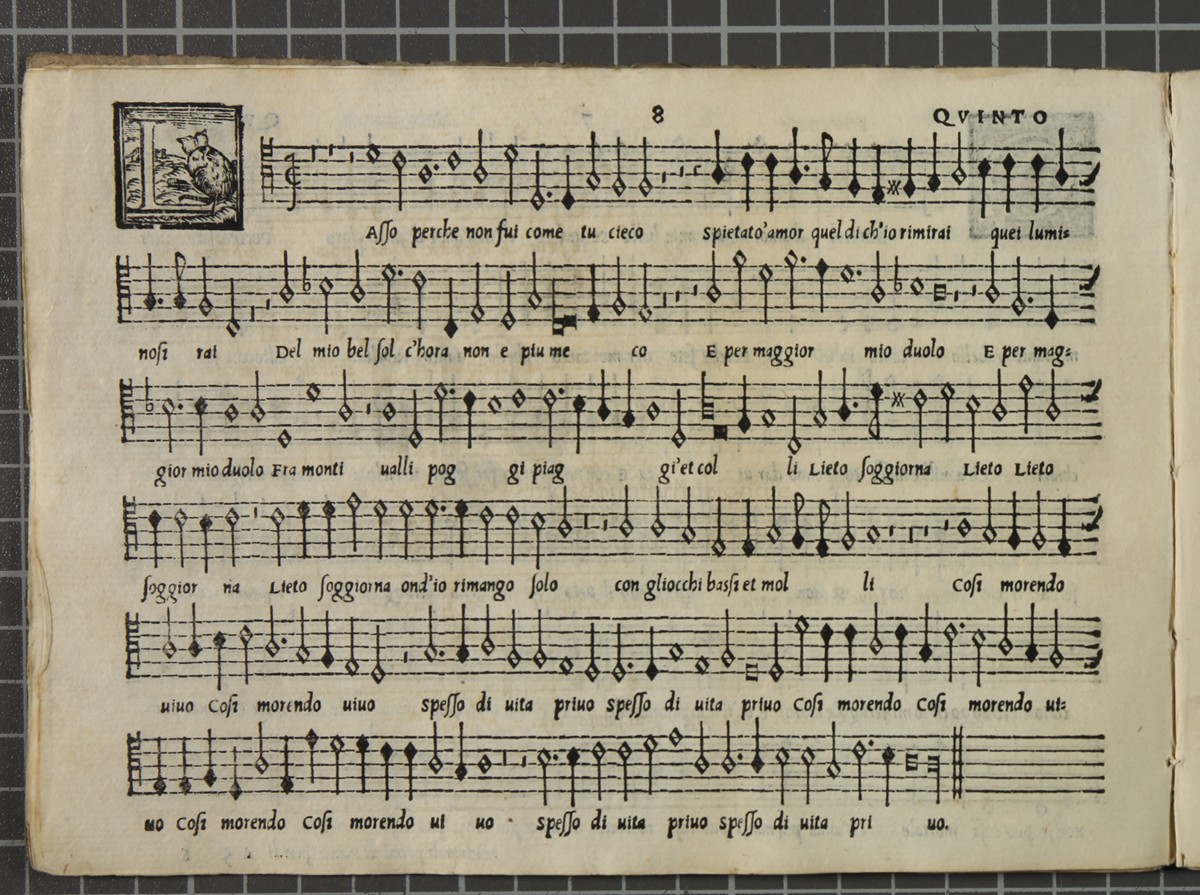 8 QVINTO
L Aſſo perche non fui come tu cieco spietato'amor quel di ch'io rimirai quei lumi=
noſi rai Del mio bel ſol c'hora non e piu me co E per maggior mio duolo E per mag=
gior mio duolo Fra monti ualli pog gi piag gi'et col li Lieto ſoggiorna Lieto Lieto
ſoggior na Lieto ſoggiorna ond'io rimango ſolo con gliocchi baſſi et mol li Coſi morendo
uiuo Coſi morendo uiuo speſſo di uita priuo speſſo di uita priuo Coſi morendo Coſi morendo ui=
uo Coſi morendo Coſi morendo ui uo speſſo di uita priuo speſſo di uita pri uo.